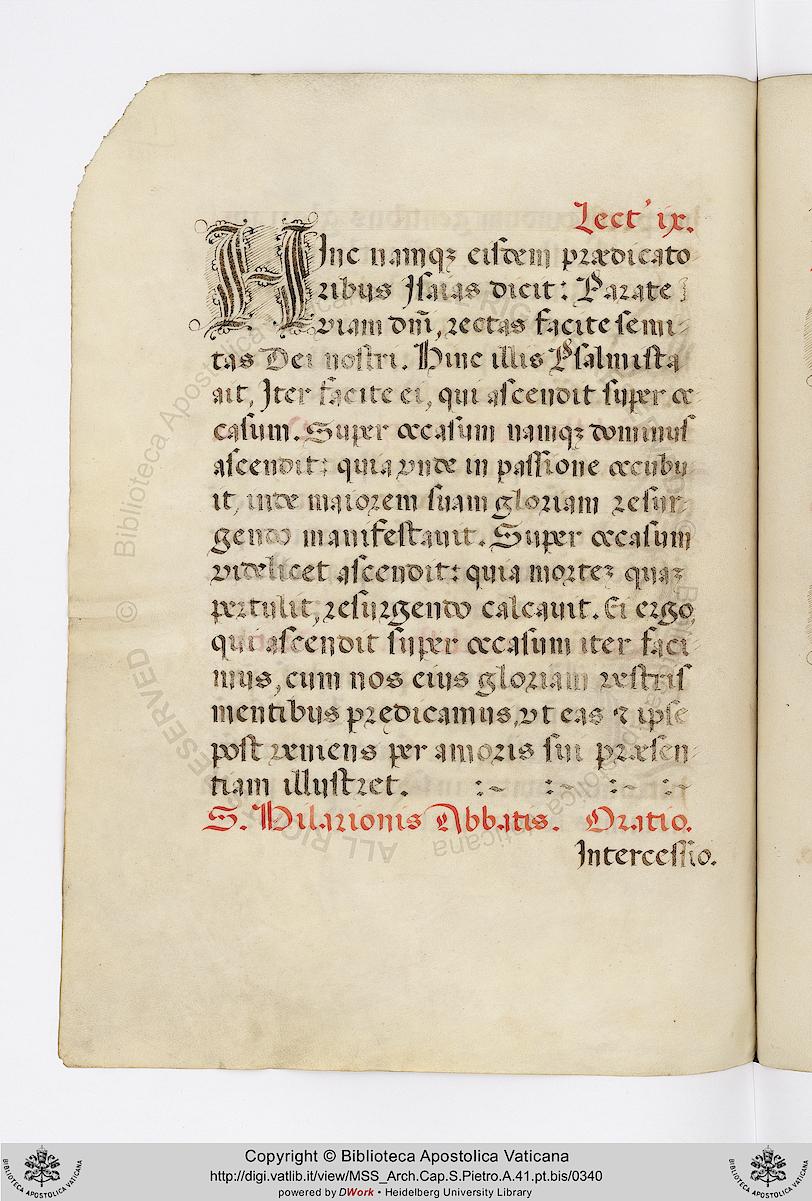 Lect' ix.
Hinc namqꝫ eisdem prædicato
ribus Isaias dicit: Parate
viam dn̄i, rectas facite semi-
tas Dei nostri. Hinc illis Psalmista
ait, Iter facite ei, qui ascendit super oc
casum. Super occasum namqꝫ dominus
ascendit: quia vnde in passione occubu
it, inde maiorem suam gloriam resur-
gendo manifestauit. Super occasum
videlicet ascendit: quia morteꝫ quaꝫ
pertulit, resurgendo calcauit. Ei ergo,
qui ascendit super occasum iter faci
mus, cum nos eius gloriam vestris
mentibus predicamus, vt eas ⁊ ipse
post veniens per amoris sui præsen-
tiam illustret. :~ :~ :~ :~
S. Hilarionis Abbatis. Oratio.
Intercessio.
© Biblioteca Apostolica Vaticana
ALL RIGHTS RESERVED
Copyright © Biblioteca Apostolica Vaticana
http://digi.vatlib.it/view/MSS_Arch.Cap.S.Pietro.A.41.pt.bis/0340
powered by DWork • Heidelberg University Library